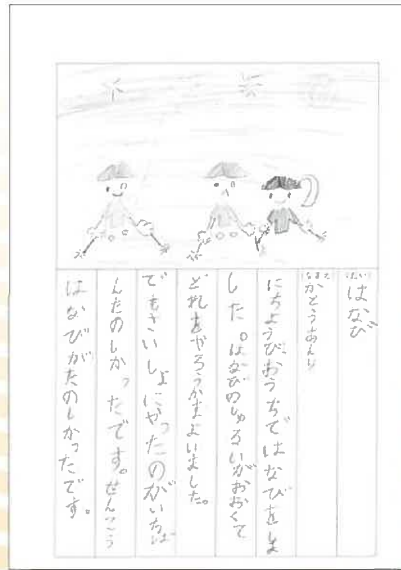 (だい)はなび
(なまえ)かとうあんり
にちようびおうちではなびをしま
した。はなびのしゅるいがおおくて
どれをやろうかまよいました。
でもさいしょにやったのがいちば
んたのしかったです。せんこう
はなびがたのしかったです。